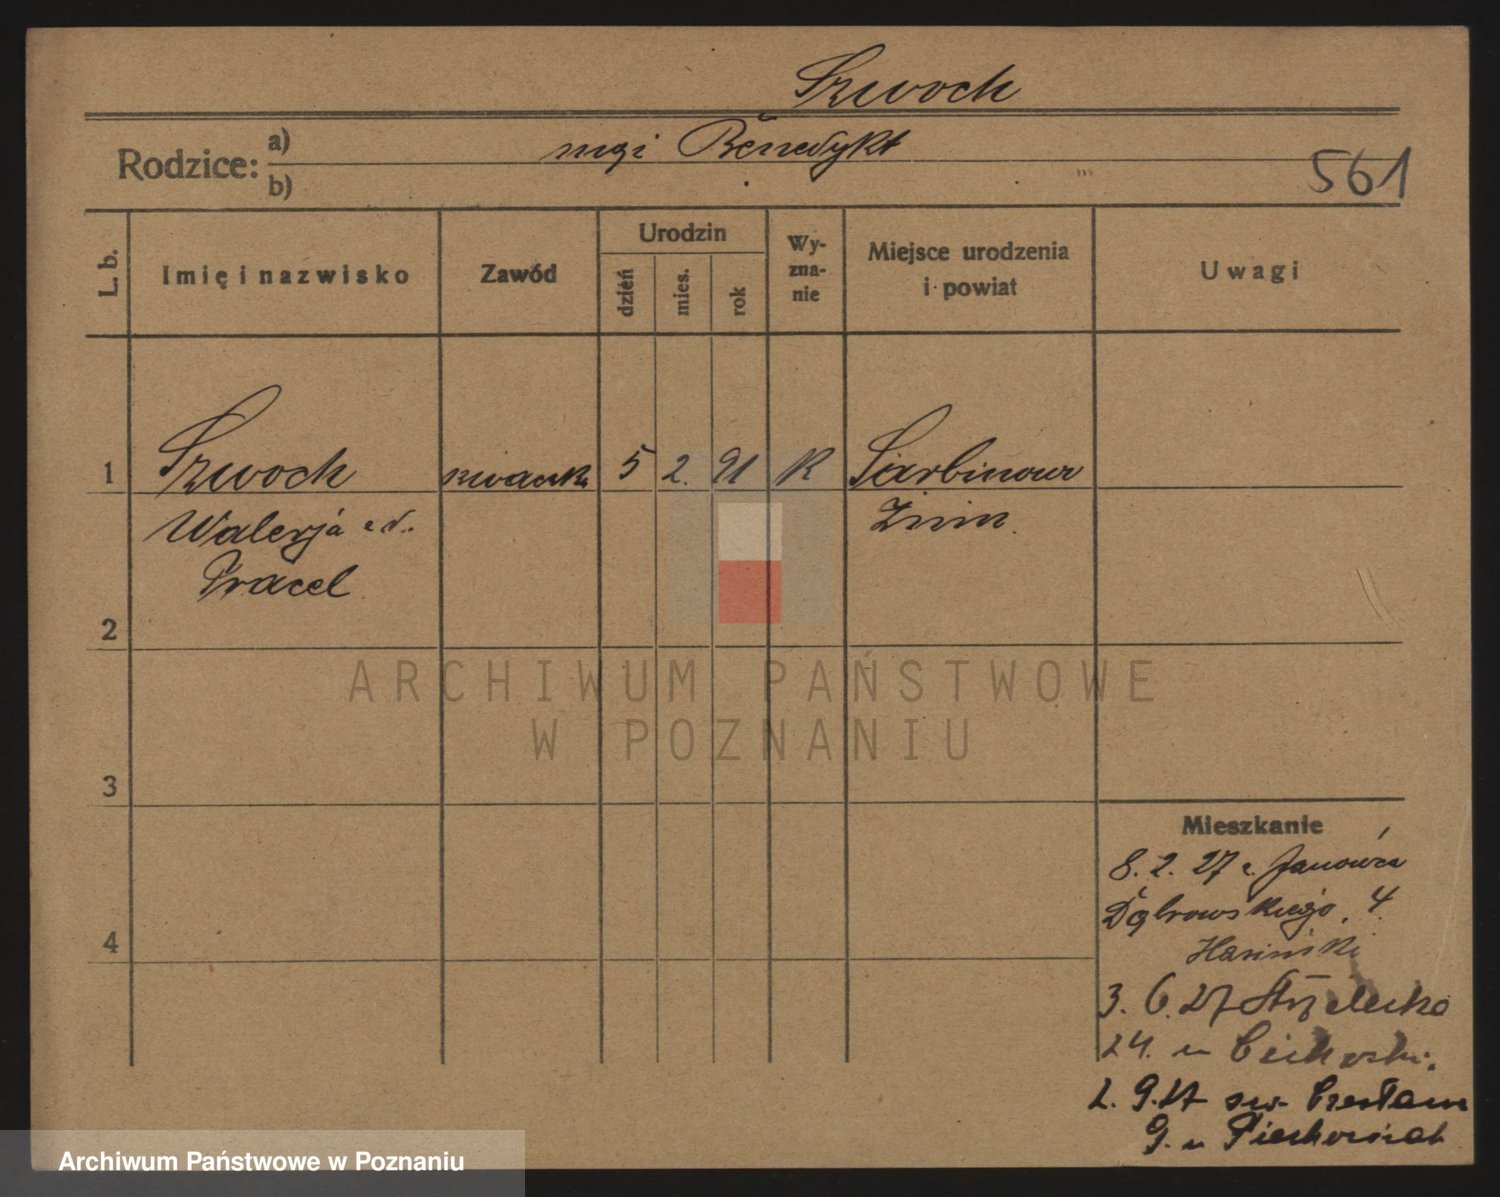 Szwoch
Rodzice: a) mąż Benedykt
b)
561
L. b.
Imię i nazwisko
Zawód
Urodzin
dzień
mies.
rok
Wy-
zna-
nie
Miejsce urodzenia
i powiat
Uwagi
1 Szwoch 5 2. 91 K Sarbinowa
Walerja z d.
Pracel
Żnin.
2
3
4
Mieszkanie
8. 2. 27 z Janówca
Dąbrowskiego 4
Hasiński
3. 6. 27 Strzelecka
24. u Cichorski.
2. 9. 27 św. Czesława
9. u
ARCHIWUM PAŃSTWOWE
W POZNANIU
Archiwum Państwowe w Poznaniu